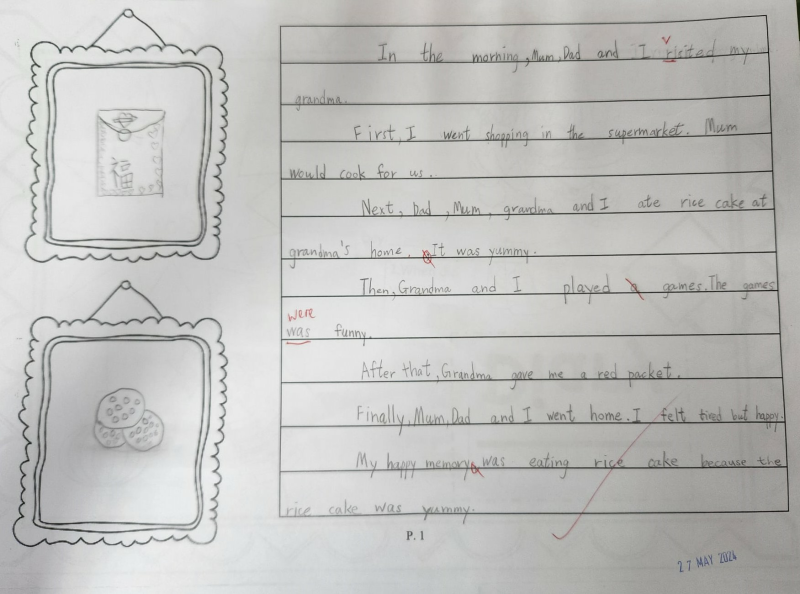 福
In the morning, Mum, Dad and I visited my
grandma.
First, I went shopping in the supermarket. Mum
would cook for us.
Next, Dad, Mum, grandma and I ate rice cake at
grandma's home. It was yummy.
Then, Grandma and I played a games. The games
were
was funny.
After that, Grandma gave me a red packet.
Finally, Mum, Dad and I went home. I felt tired but happy.
My happy memory was eating rice cake because the
rice cake was yummy.
P. 1
27 MAY 2024